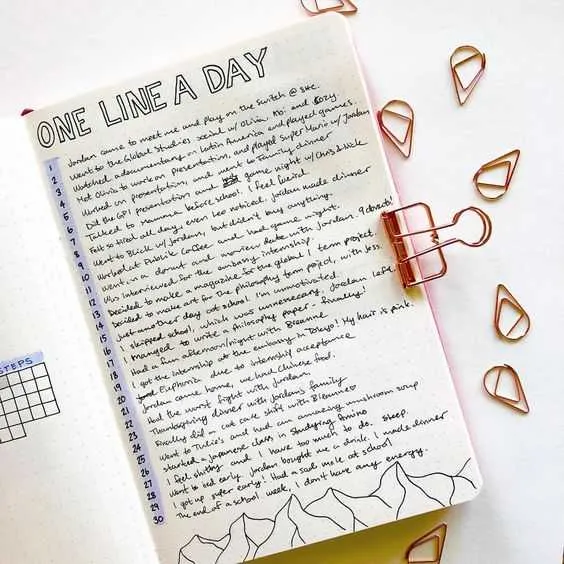 ONE LINE A DAY
1 Jordan came to meet me and play on the switch @ sbe.
2 Went to the Global Studies social w/ Olivia, Abi and Rozy
3 Watched a documentary on Latin America and played games.
4 Met Olivia to work on presentation, and played Super Mario w/ Jordan
5 Worked on presentation, and went to family dinner
6 Did the GPI presentation, and game night w/ Chris & Nick
7 Talked to mamma before school. I feel weird
8 Felt so tired all day, even Leo noticed. Jordan made dinner
9 Went to Blick w/ Jordan, but didn't buy anything.
10 Worked at Publik Coffee and had game night.
11 Went on a donut and movie date with Jordan, 9 donuts!
12 Was interviewed for the embassy internship.
13 Decided to make a magazine for the global 1 term project.
14 Decided to make art for the philosophy term project, with less.
15 Just another day at school. I'm unmotivated.
16 I skipped school, which was unnecessary. Jordan left
17 I managed to write a philosophy paper - finally.
18 Had a fun afternoon/night with Breanne
19 I got the internship at the embassy in Tokyo! My hair is pink.
20 Euphoric due to internship acceptance
21 Jordan came home, we had Chinese food.
22 Had the worst fight with Jordan
23 Thanksgiving dinner with Jordans family
24 Finally did a cat cafe shift with Breanne♡
25 Went to Julie's and had an amazing mushroom soup
26 started a Japanese class in studying Amino
27 I feel shitty and I have too much to do. sleep.
28 Went to bed early. Jordan bought me a drink. I made dinner
29 I got up super early! Had a sad mole at school
30 The end of a school week, I don't have any energy.
STEPS